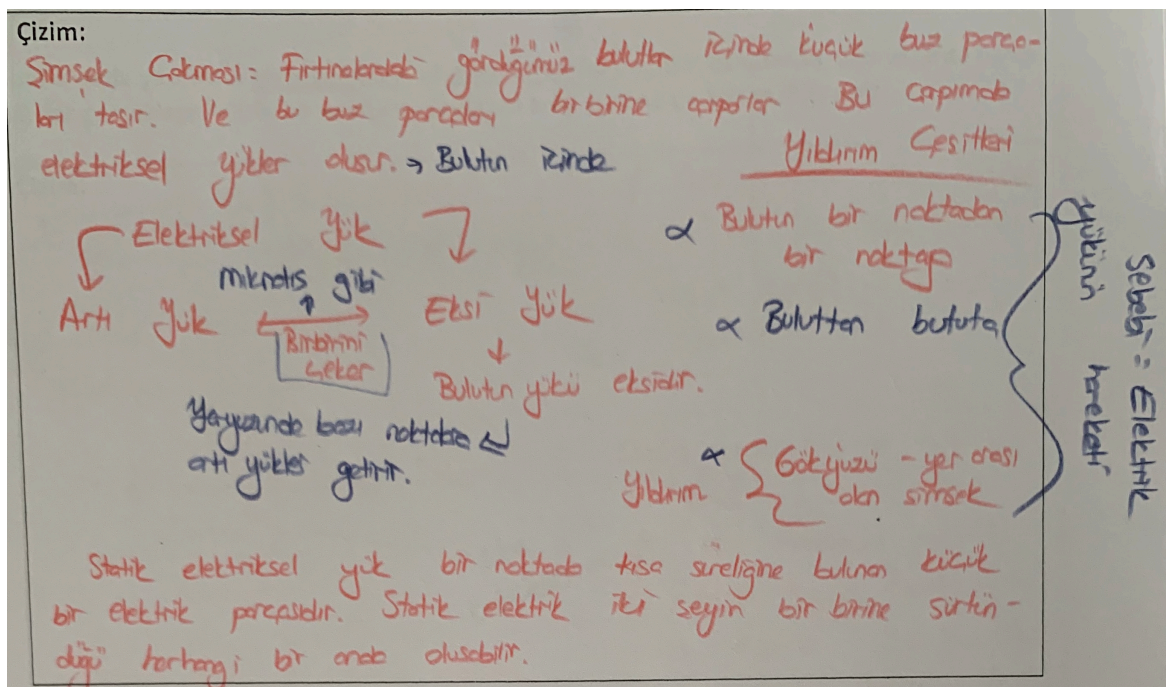 Çizim:
Şimşek Çakması = Fırtınalardaki gördüğümüz bulutlar içinde küçük buz parça-
ları taşır. Ve bu buz parçaları birbirine çarparlar Bu çarpımada
elektriksel yükler oluşur. → Bulutun içinde
Yıldırım Çeşitleri
Elektriksel Yük
Mıknatıs gibi
Artı Yük
Eksi Yük
Birbirini
Çeker
Bulutun yükü eksidir.
Yeryüzünde bazı noktalara
artı yükler getirir.
∝ Bulutun bir noktadan
bir noktaya
∝ Buluttan buluta
∝ Gökyüzü - yer arası
Yıldırım olan şimşek
Sebebi = Elektrik
yükünün hareketi
Statik elektriksel yük bir noktada kısa süreliğine bulunan küçük
bir elektrik parçasıdır. Statik elektrik iki şeyin bir birine sürtün-
düğü herhangi bir anda oluşabilir.